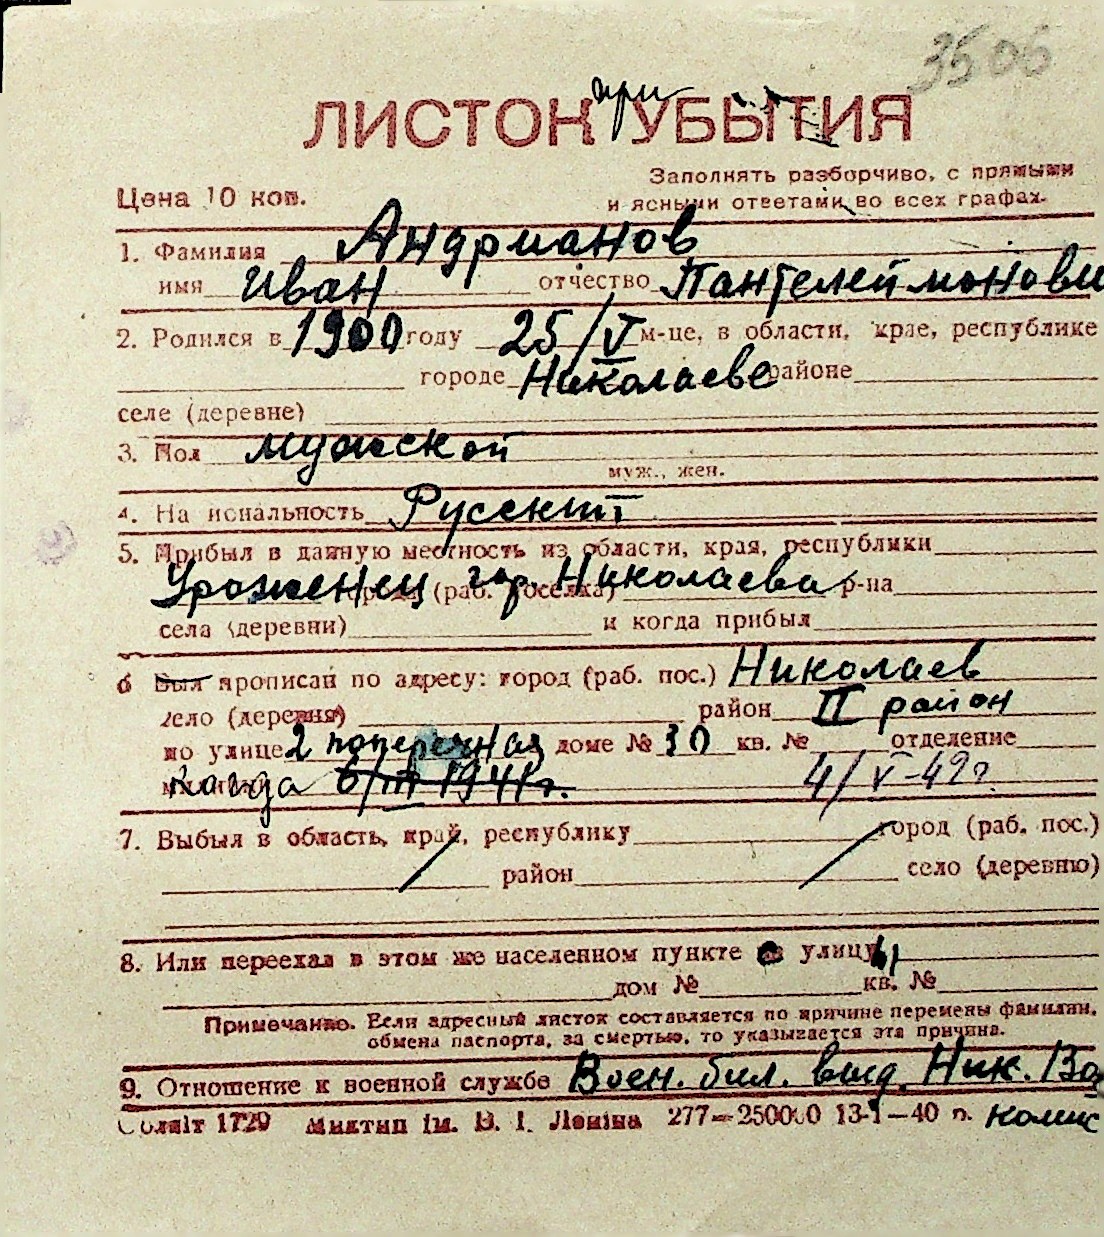 3506
при
ЛИСТОК УБЫТИЯ
Заполнять разборчиво, с прямыми
Цена 10 коп.
и ясными ответами во всех графах.
1. Фамилия Андрианов
имя Иван отчество Пантелеймонови
2. Родился в 1900 году 25/V м-це, в области, крае, республике
городе Николаеве районе
селе (деревне)
3. Пол мужской
муж., жен.
4. На иональность Русский
5. Прибыл в данную местность из области, края, республики
Уроженец гор. Николаева (раб. поселка) р-на
села (деревни) и когда прибыл
6 Был прописан по адресу: город (раб. пос.) Николаев
село (деревня) район II район
по улице 2 поперечная доме № 30 кв. № отделение
когда 6/III 1941г. 4/V-42г
7. Выбыл в область, край, республику город (раб. пос.)
район село (деревню)
8. Или переехал в этом же населенном пункте с улицы
дом № кв. №
Примечание. Если адресный листок составляется по причине перемены фамилии,
обмена паспорта, за смертью, то указывается эта причина.
9. Отношение к военной службе Воен. бил. выд. Ник. Во
комис
Облліт 1729 Миктип ім. В. І. Леніна 277—250000 13-1—40 р.